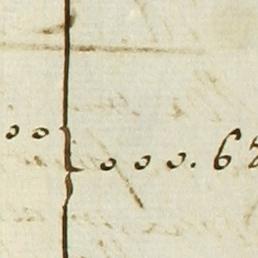 oo
ooo. 6